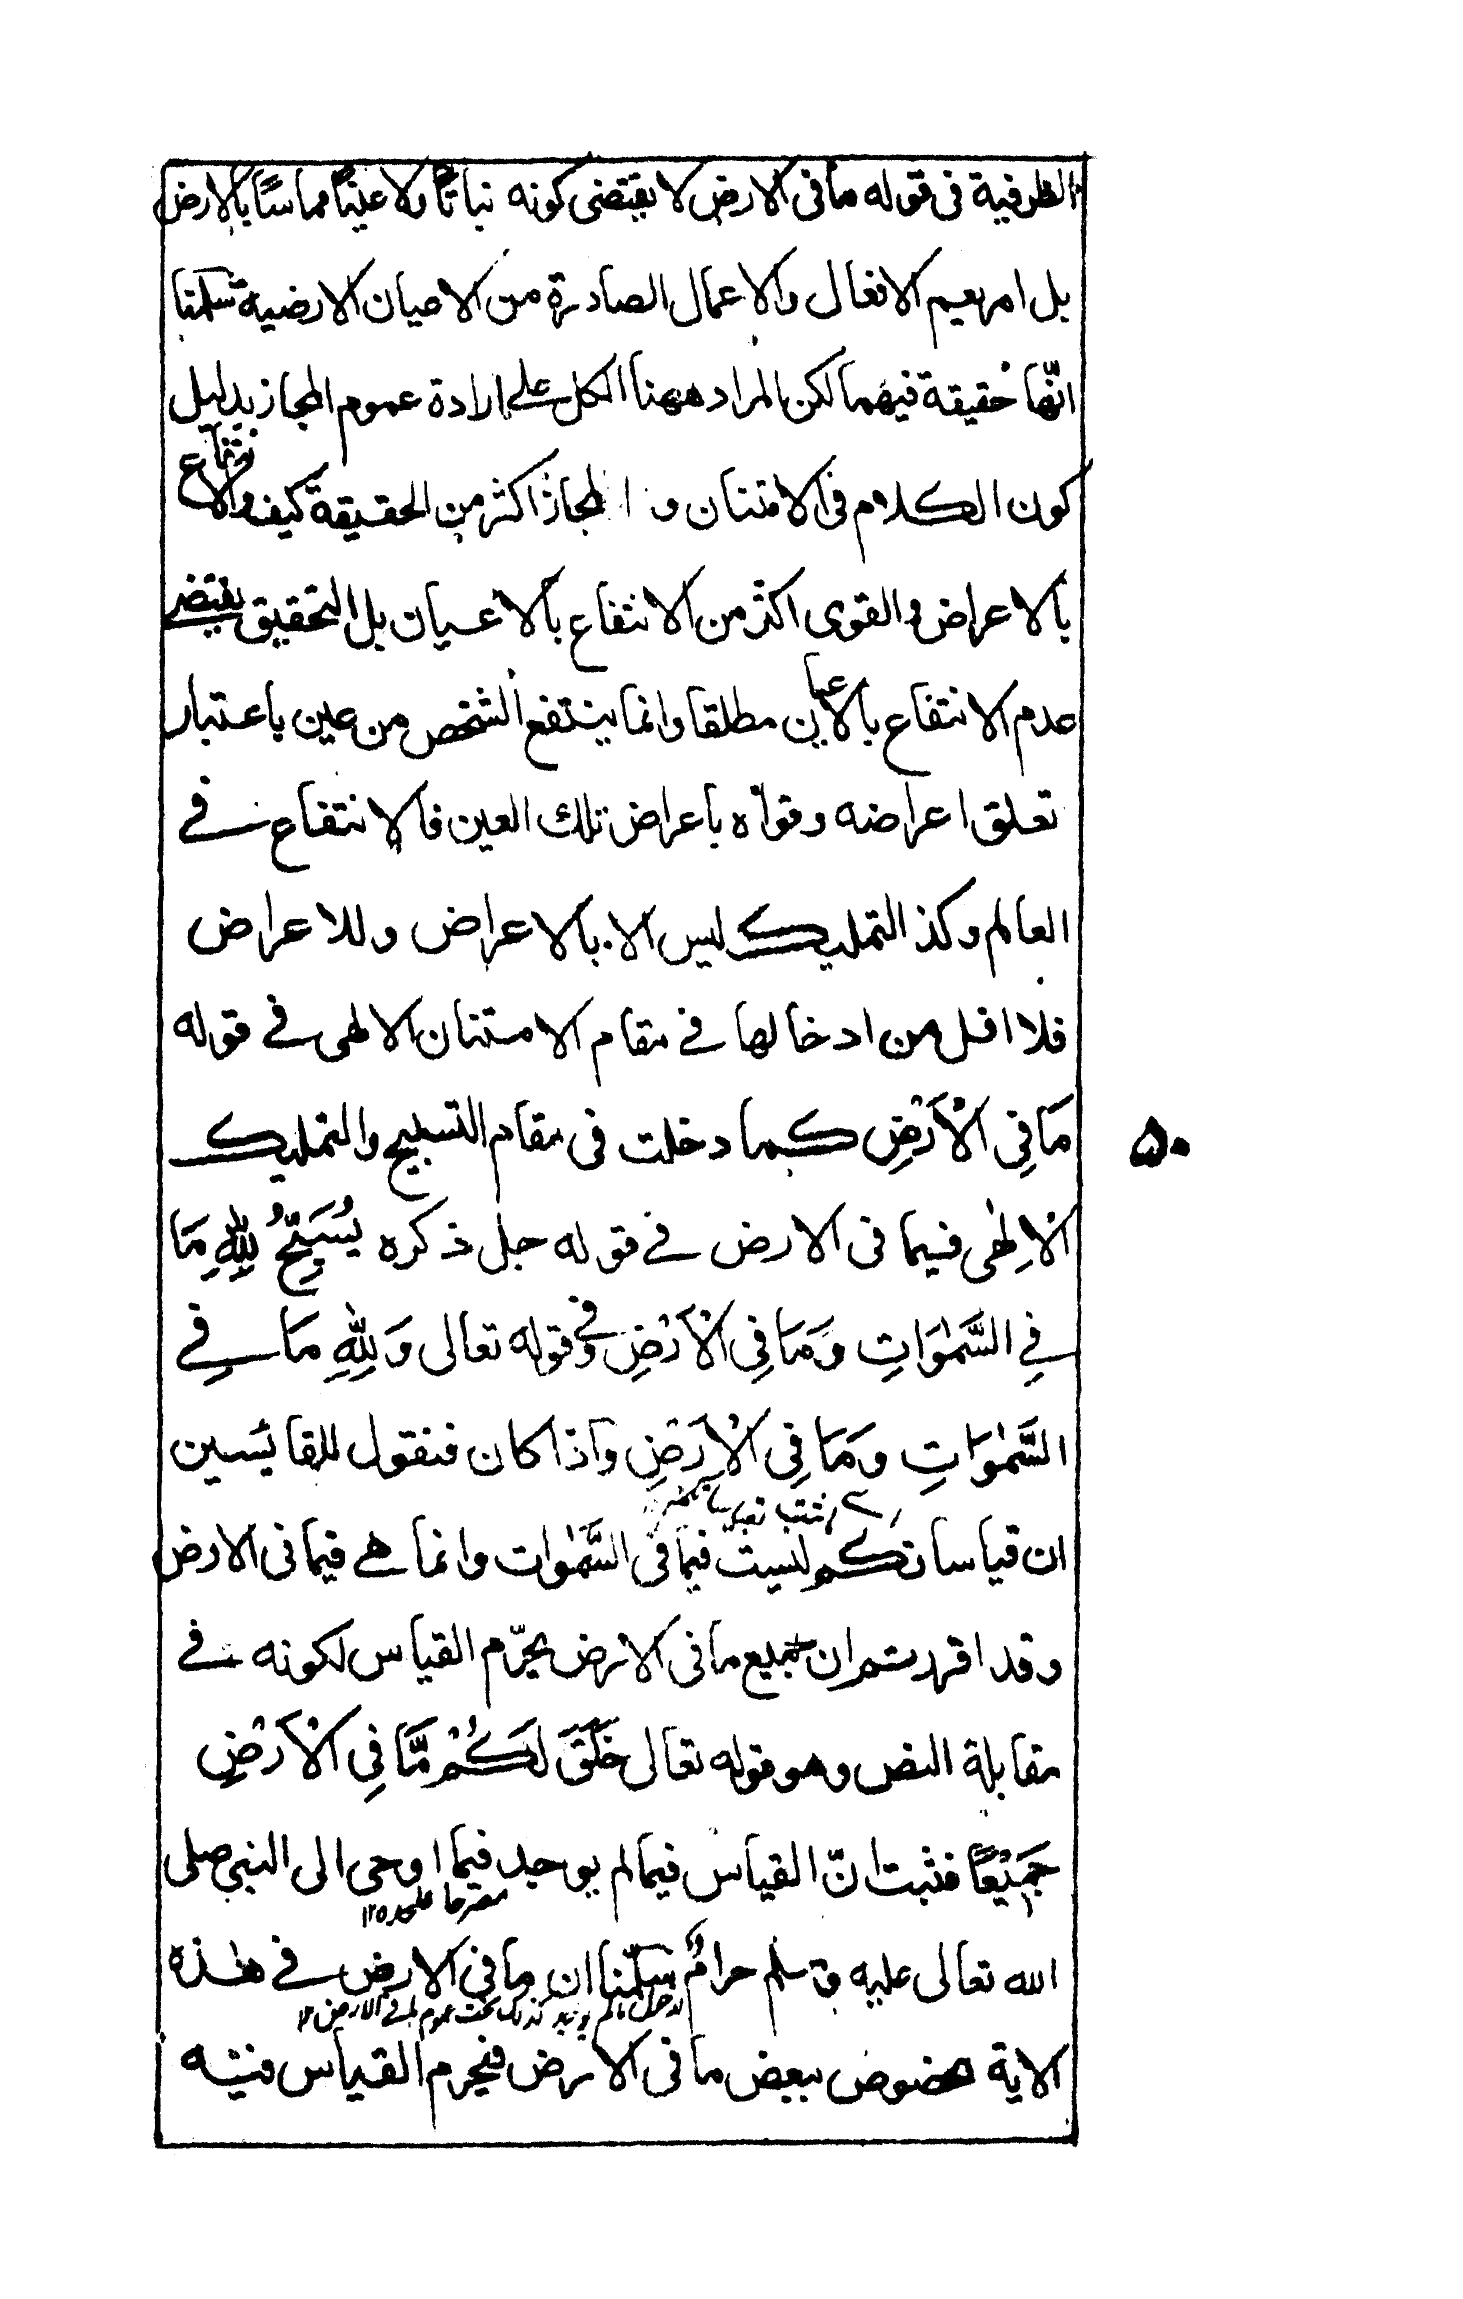 الظرفية فى قوله ما فى الارض لا يقتضى كونه نباتًا ولا عينًا مماسًا بالارض
بل امر يعيم الافعال والاعمال الصادرة من الاعيان الارضية سلمنا
انّها حقيقة فيهما لكن المراد ههنا الكل على ارادة عموم المجاز بدليل
كون الكلام فى الامتنان و المجاز اكثر من الحقيقة كيف والانتفاع
بالاعراض والقوى اكثر من الانتفاع بالاعيان بل التحقيق يقتضے
عدم الانتفاع بالاعيان مطلقا وانما ينتفع الشخص من عين باعتبار
تعلق اعراضه وقواه باعراض تلك العين فالانتفاع فے
العالم وكذ التمليك ليس الا بالاعراض وللاعراض
فلا اقل من ادخالها فے مقام الامتنان الالهى فے قوله
مَا فِى الْاَرْضِ كما دخلت فى مقام التسبيح والتمليك
۵۰
الْاِلٰهى فيما فى الارض فے قوله جل ذكره يُسَبِّحُ لِلّٰهِ مَا
فِے السَّمٰوَاتِ وَمَا فِى الْاَرْضِ وفے قوله تعالى وَلِلّٰهِ مَا فِے
السَّمٰوَاتِ وَمَا فِى الْاَرْضِ واذا كان فنقول للقائسين
ان قياساتكم ليست فيما فى السَّمٰوات وانما هے فيما فى الارض
وقد اقررتم ان جميع ما فى الارض يحرّم القياس لكونه فے
مقابلة النص وهو قوله تعالى خَلَقَ لَكُمْ مَّا فِى الْاَرْضِ
جَمِيْعًا فثبت انّ القياس فيما لم يوجد فيما اوحى الى النبى صلى
الله تعالى عليه وسلم حرامٌ سلّمنا ان ما فى الارض فے هٰذه
الاية مخصوص ببعض ما فى الارض فيحرم القياس فيه